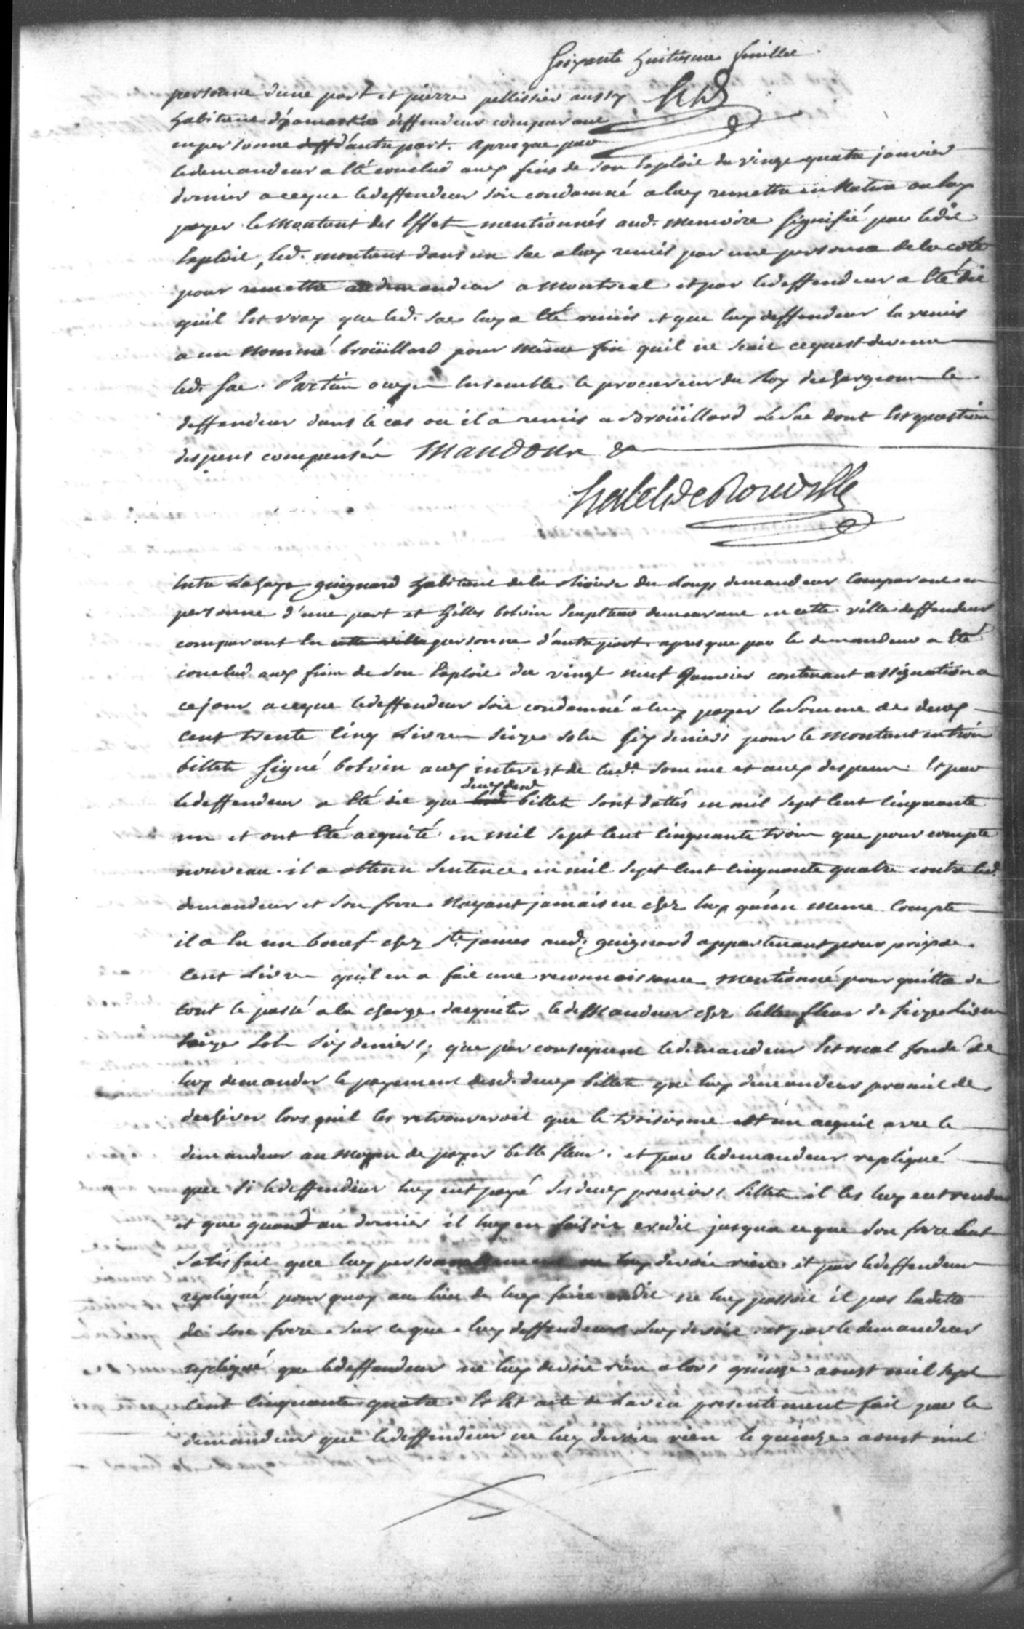 Soixante huitieme feuillet
personne d'une part et pierre pellissier aussy
habitant d'yamaska deffendeur comparant
en personne d'autre part. apres que par
le demandeur a Eté conclud aux fins de son Exploit du vingt quatre janvier
dernier a ce que le deffendeur soit condamné a luy remettre en Nature ou luy
payer le Montant des Effet mentionnés aud. memoire signifié par ledit
Exploit, led. montant dans un sac a luy remis par une personne de la cote
pour remettre au demandeur a Montreal et par le deffendeur a Eté dit
quil Est vray que led. sac luy a Eté remis et que luy deffendeur la remis
a un Nommé broüillard pour même fin quil ne sçait ce quest devenu
led. sac. Parties ouyes Ensemble le procureur du Roy dechargeons le
deffendeur dans le cas ou il a remis a Broüillard Le sac dont Est question
depens compensés Mandons &
hertel de Rouville
Entre Lazare guignard habitant de la Riviere du Loup demandeur Comparant en
personne d'une part et Gilles bolvin sculpteur demeurant en cette ville deffendeur
comparant En cette ville personne d'autre part. apres que par le demandeur a Eté
conclud aux fins de son Exploit du vingt neuf Janvier contenant assignation a
ce jour a ce que le deffendeur soit condamné a luy payer la somme de deux
Cent trente Cinq Livres seize sols six deniers pour le montant en trois
billets signé bolvin aux interest de lad. somme et aux depens. Et par
le deffendeur a Eté dit que deux desd. billets sont dattés en mil sept Cent Cinquante
un et ont Eté acquité en mil sept Cent Cinquante trois que pour compte
nouveau il a obtenu sentence en mil sept Cent Cinquante quatre contre led.
demandeur et son frere Nayant jamais eu chez luy qu'un meme Compte
il a Eu un boeuf chez St james aud. guignard appartenant pour prix de
Cent Livres quil en a fait une reconnoissance mentionné pour quitte de
tout le passé a la charge d'acquiter le demandeur chez bellefleur de seize Livres
seize sols six deniers; que par consequent le demandeur Est mal fondé de
luy demander le payement desd. deux billets que luy demandeur promit de
dechirer lors quil les retrouveroit que le troisieme est un acquit avec le
demandeur au moyen de payer bellefleur. et par le demandeur repliqué
que si le deffendeur luy eut payé les deux premiers billets il les luy eut rendu
et que quand au dernier il luy en faisoit credit jusqua ce que son frere Eut
satisfait que luy personnellement ne luy devoit rien. et par le deffendeur
repliqué pourquoy au lieu de luy faire credit ne luy passoit il pas la dette
de son frere sur ce que luy deffendeur luy devoit et par le demandeur
repliqué que le deffendeur ne luy devoit rien alors quinze aoust mil sept
Cent Cinquante quatre Est acte de L'aveu presentement fait par le
demandeur que le deffendeur ne luy devoit rien le quinze aoust mil